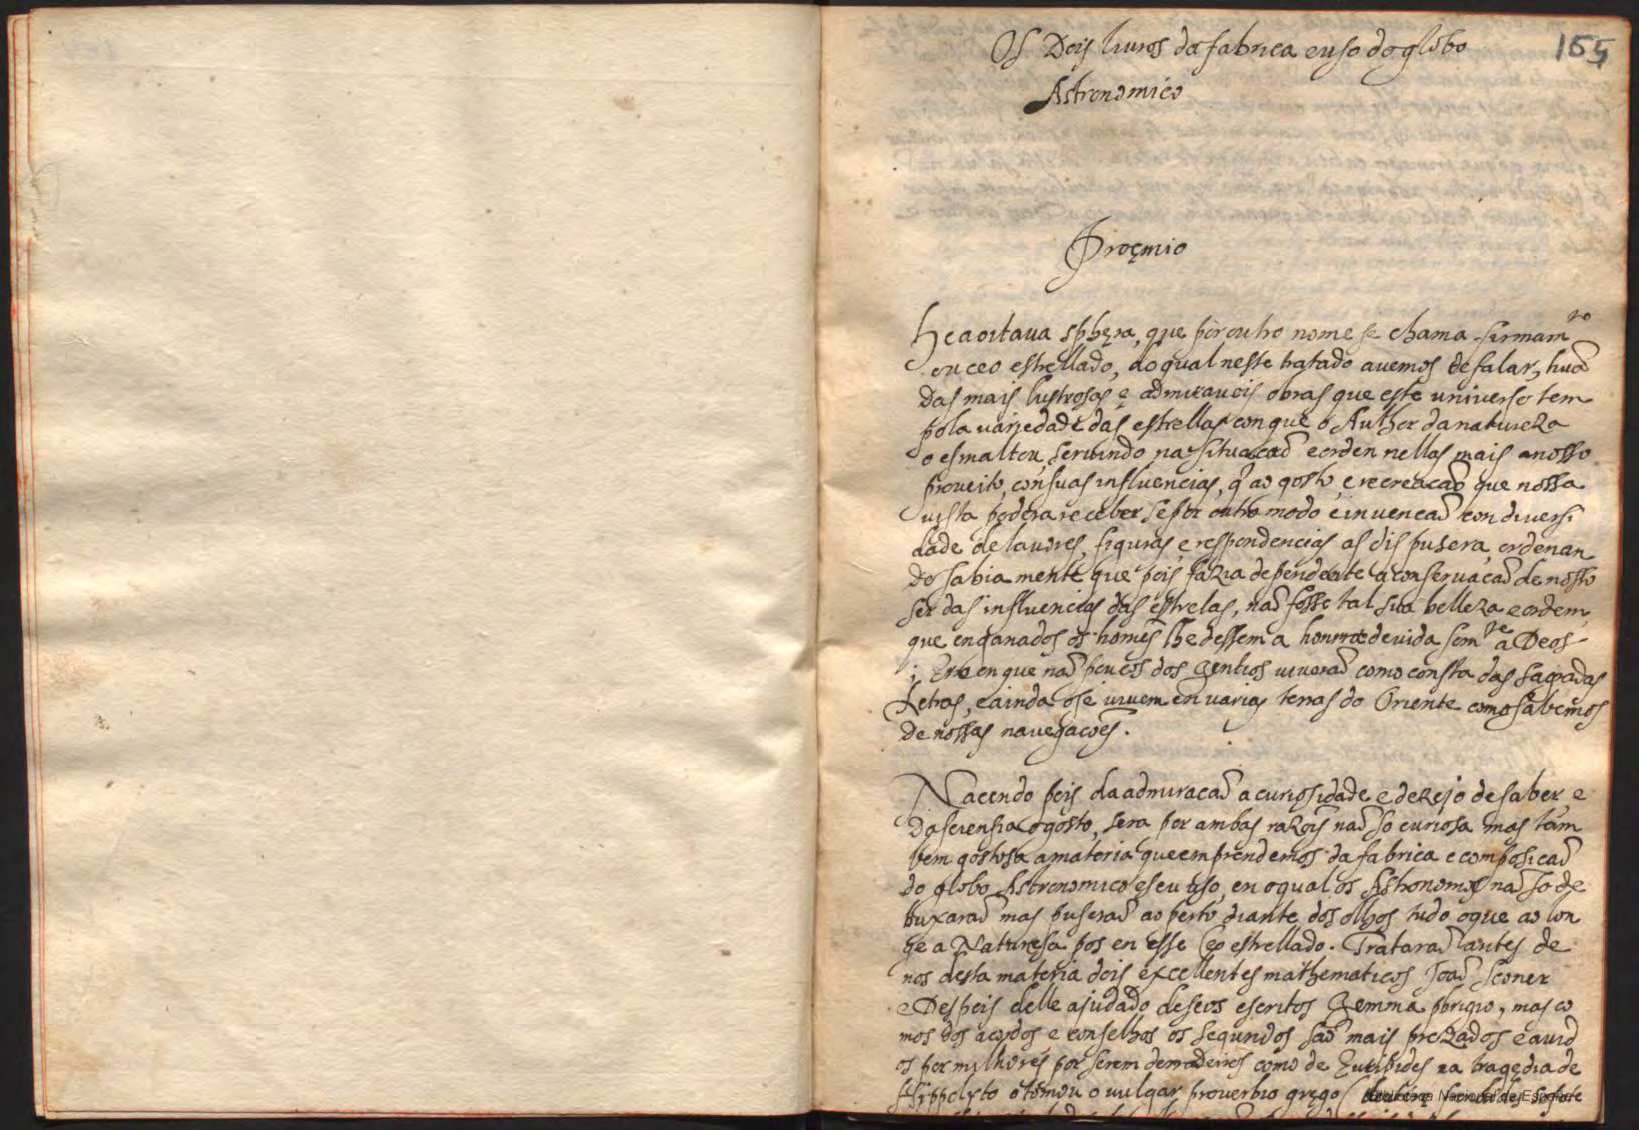 Os Dois liuros da fabrica e uso do globo
155
Astronomico
Proęmio
He a oitaua sphęra, que por outro nome se chama firmam.to
ou ceo estrellado, do qual neste tratado auemos de falar, huã
das mais lustrosas e admiraueis obras que este universo tem
pola uariedade das estrellas con que o Author da natureza
o esmaltou, seruindo na situaçaõ e orden nellas mais a nosso
proueito, con suas influencias, q̃ ao gosto, e recreaçaõ que nossa
uista podera receber se por outro modo e inuençaõ con diuersi
dade de lauores, figuras, e respondencias as dispusera, ordenan
do sabiamente que pois fazia dependente a conseruaçaõ de nosso
ser das influencias das estrelas, naõ fosse tal sua belleza e ordem,
que enganados os homẽs lhe dessem a honrra deuida som.te a Deos
; Erro en que naõ poucos dos gentios uiueraõ como consta das sagradas
Letras, e ainda oje uiuem en uarias terras do Oriente como sabemos
de nossas nauegacoẽs.
Nacendo pois da admiracaõ a curiosidade e dezejo de saber, e
da sciensia o gosto, sera por ambas razois naõ so curiosa mas tam
bem gostosa a materia que emprendemos da fabrica e composicaõ
do globo Astronomico e seu uso, en o qual os Astronomos naõ so de
buxaraõ mas puseraõ ao perto diante dos olhos tudo o que ao lon
ge a Naturesa pos en esse Ceo estrellado. Trataraõ antes de
nos desta materia dois excellentes mathematicos Joaõ Sconer
e Despois delle ajudado de seos escritos Gemma phrigio, mas co
mos dos acordos e conselhos os segundos saõ mais prezados e auid
os por milhores por serem derradeiros como de Euripides na tragędia de
Hippolyto o tomou o uulgar prouerbio grego
Biblioteca Nacional de España